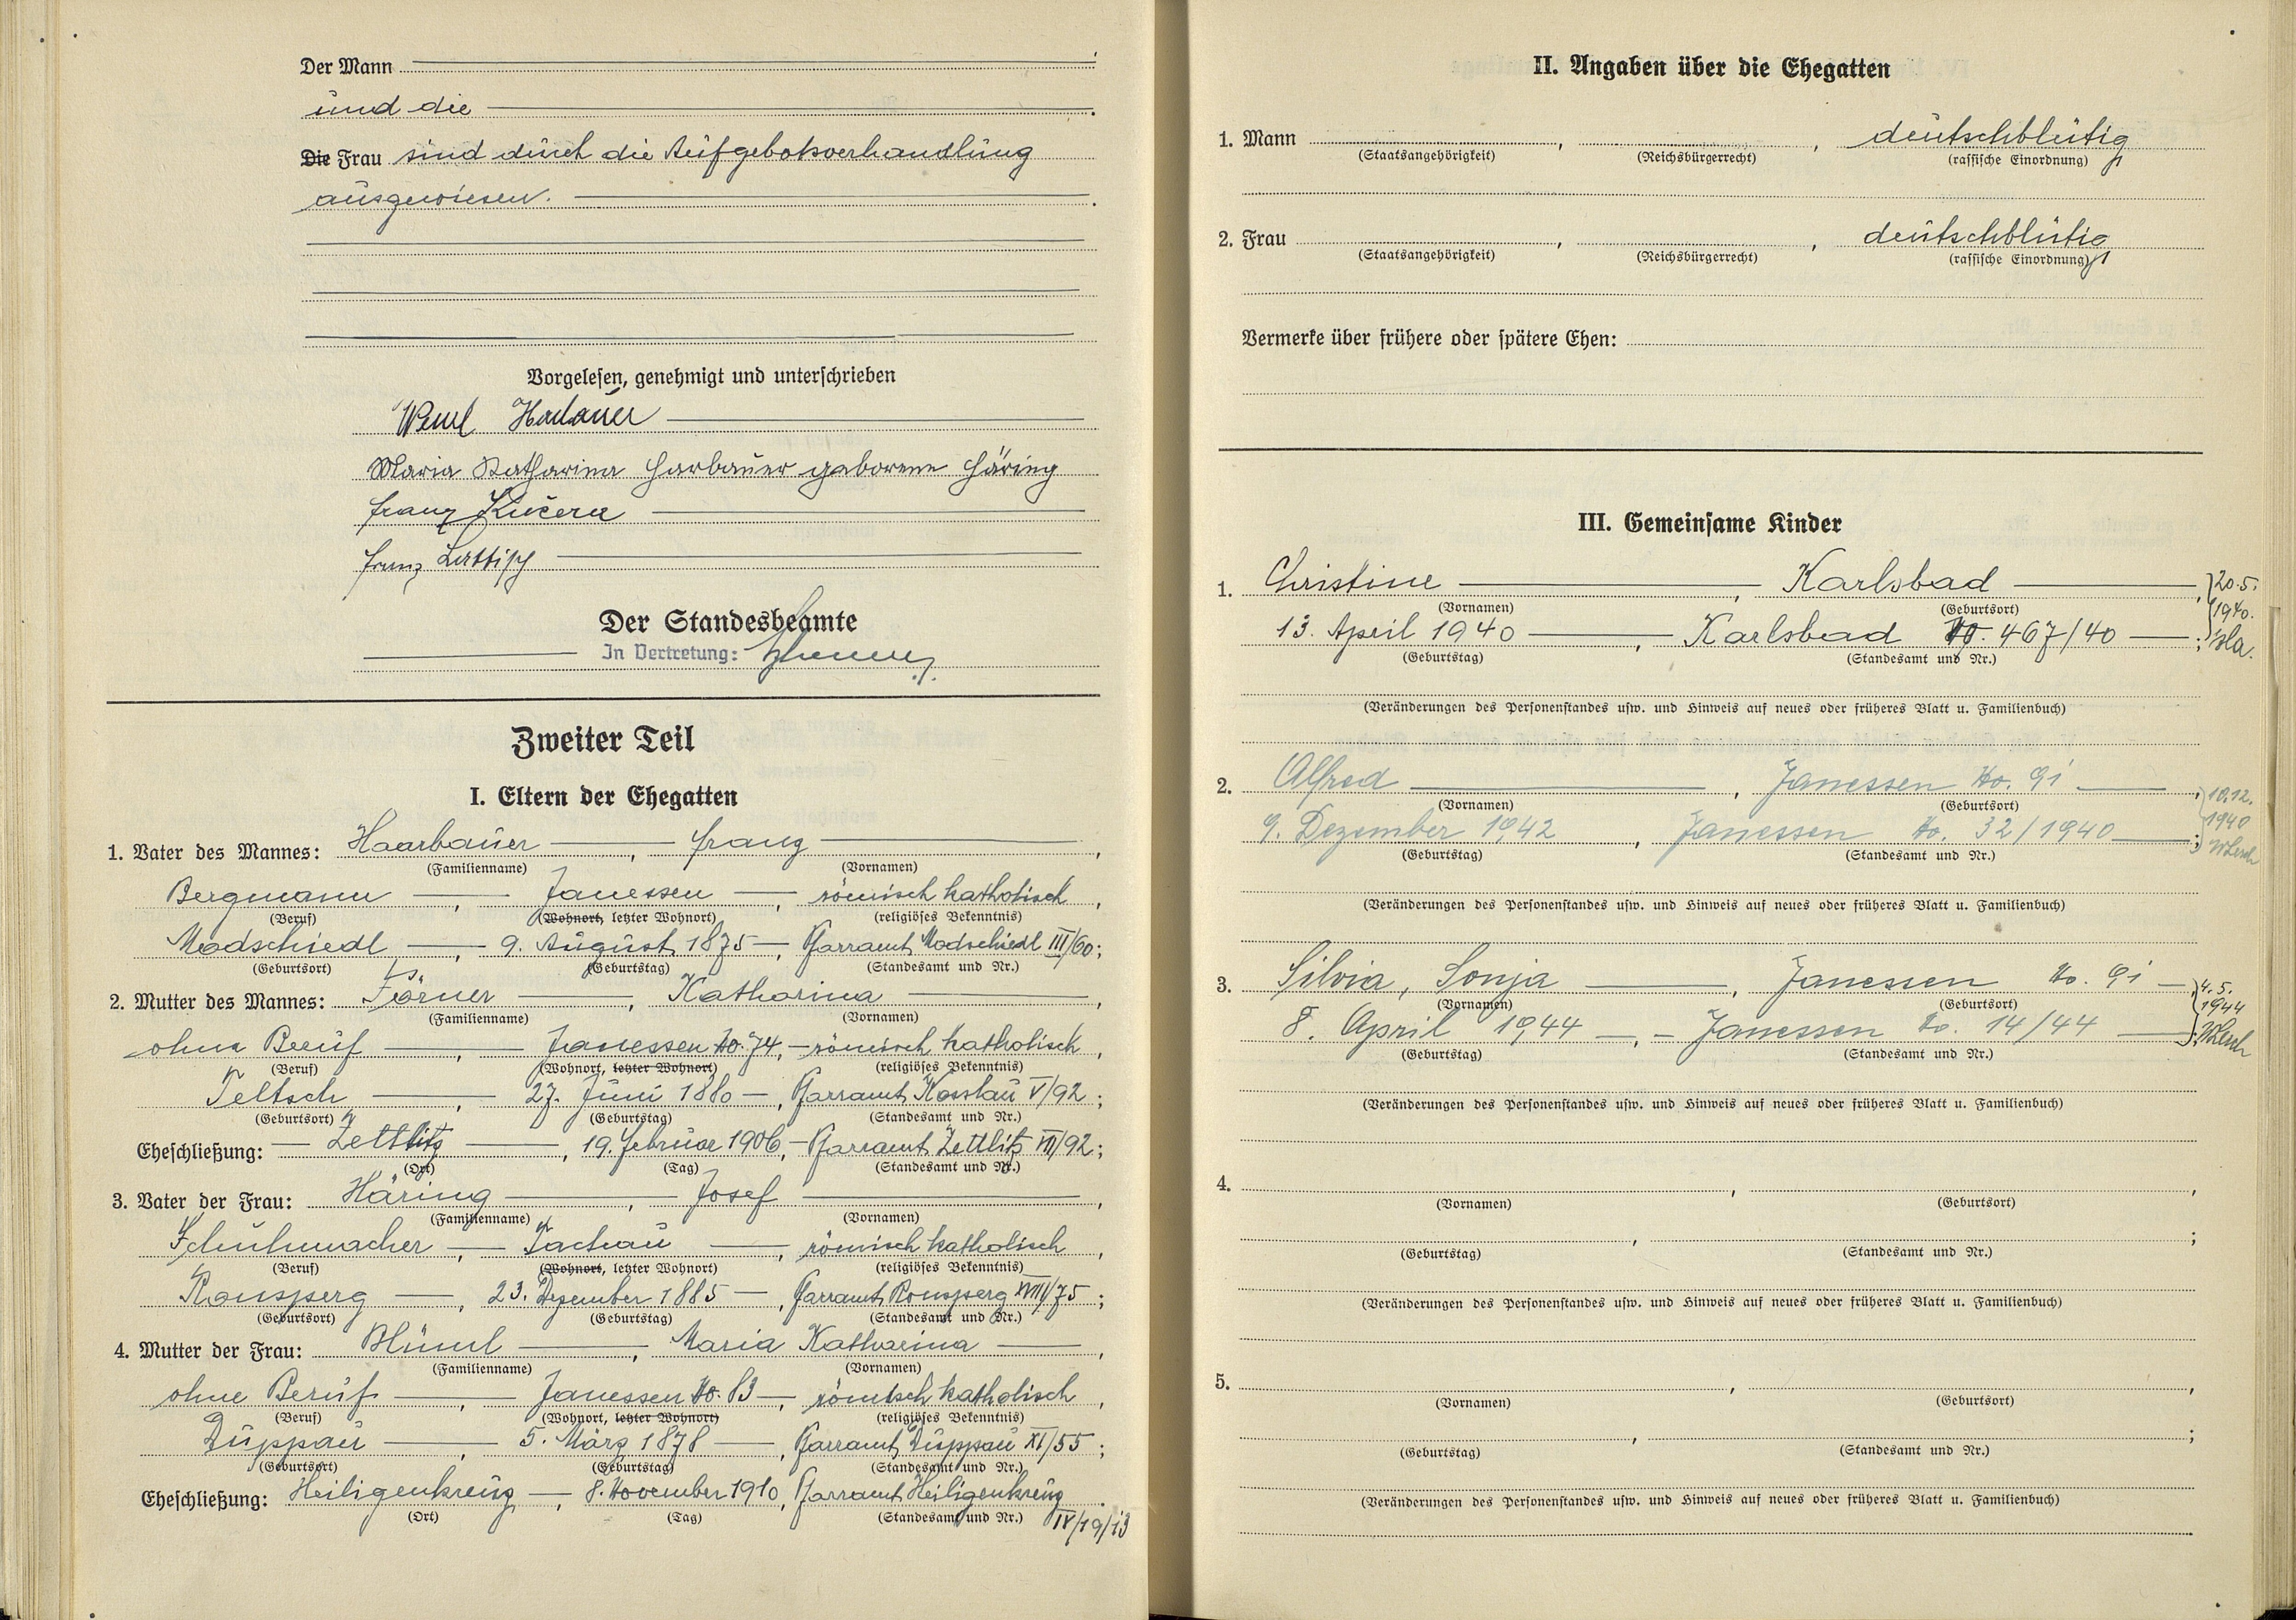 Der Mann
und die
Die Frau sind durch die Aufgebotsverhandlung
ausgewiesen.
Vorgelesen, genehmigt und unterschrieben
Maria Katharina Harbauer geborene Häring
Franz Kučera
Franz Lattisch
Der Standesbeamte
In Vertretung:
Zweiter Teil
I. Eltern der Ehegatten
1. Vater des Mannes: Haarbauer, Franz,
(Familienname) (Vornamen)
Bergmann, Janessen, römisch katholisch,
(Beruf) (Wohnort, letzter Wohnort) (religiöses Bekenntnis)
Modschiedl, 9. August 1875, Pfarramt Modschiedl III/60;
(Geburtsort) (Geburtstag) (Standesamt und Nr.)
2. Mutter des Mannes: Katharina,
(Familienname) (Vornamen)
ohne Beruf, Janessen No. 74, römisch katholisch,
(Beruf) (Wohnort, letzter Wohnort) (religiöses Bekenntnis)
Teltsch, 27. Juni 1880, Pfarramt Kosslau V/92;
(Geburtsort) (Geburtstag) (Standesamt und Nr.)
Eheschließung: Zettlitz, 19. Februar 1906, Pfarramt Zettlitz VII/92;
(Ort) (Tag) (Standesamt und Nr.)
3. Vater der Frau: Häring, Josef,
(Familienname) (Vornamen)
Schuhmacher, Tachau, römisch katholisch,
(Beruf) (Wohnort, letzter Wohnort) (religiöses Bekenntnis)
Ronsperg, 23. Dezember 1885, Pfarramt Ronsperg XVIII/75;
(Geburtsort) (Geburtstag) (Standesamt und Nr.)
4. Mutter der Frau: Blüml, Maria Katharina,
(Familienname) (Vornamen)
ohne Beruf, Janessen No. 83, römisch katholisch,
(Beruf) (Wohnort, letzter Wohnort) (religiöses Bekenntnis)
Duppau, 5. März 1878, Pfarramt Duppau XI/55;
(Geburtsort) (Geburtstag) (Standesamt und Nr.)
Eheschließung: Heiligenkreuz, 8. November 1910, Pfarramt Heiligenkreuz.
(Ort) (Tag) (Standesamt und Nr.) IV/19/13
II. Angaben über die Ehegatten
1. Mann, , deutschblütig
(Staatsangehörigkeit) (Reichsbürgerrecht) (rassische Einordnung)
2. Frau, , deutschblütig
(Staatsangehörigkeit) (Reichsbürgerrecht) (rassische Einordnung)
Vermerke über frühere oder spätere Ehen:
III. Gemeinsame Kinder
1. Christine, Karlsbad, 20.5.
(Vornamen) (Geburtsort) 1940.
13. April 1940, Karlsbad No. 467/40;
(Geburtstag) (Standesamt und Nr.)
(Veränderungen des Personenstandes usw. und Hinweis auf neues oder früheres Blatt u. Familienbuch)
2. Alfred, Janessen No. 91, 10.12.
(Vornamen) (Geburtsort) 1940
9. Dezember 1942, Janessen No. 32/1940;
(Geburtstag) (Standesamt und Nr.)
(Veränderungen des Personenstandes usw. und Hinweis auf neues oder früheres Blatt u. Familienbuch)
3. Silvia, Sonja, Janessen No. 91, 4.5.
(Vornamen) (Geburtsort) 1944
8. April 1944, Janessen No. 14/44;
(Geburtstag) (Standesamt und Nr.)
(Veränderungen des Personenstandes usw. und Hinweis auf neues oder früheres Blatt u. Familienbuch)
4. , ,
(Vornamen) (Geburtsort)
, ;
(Geburtstag) (Standesamt und Nr.)
(Veränderungen des Personenstandes usw. und Hinweis auf neues oder früheres Blatt u. Familienbuch)
5. , ,
(Vornamen) (Geburtsort)
, ;
(Geburtstag) (Standesamt und Nr.)
(Veränderungen des Personenstandes usw. und Hinweis auf neues oder früheres Blatt u. Familienbuch)